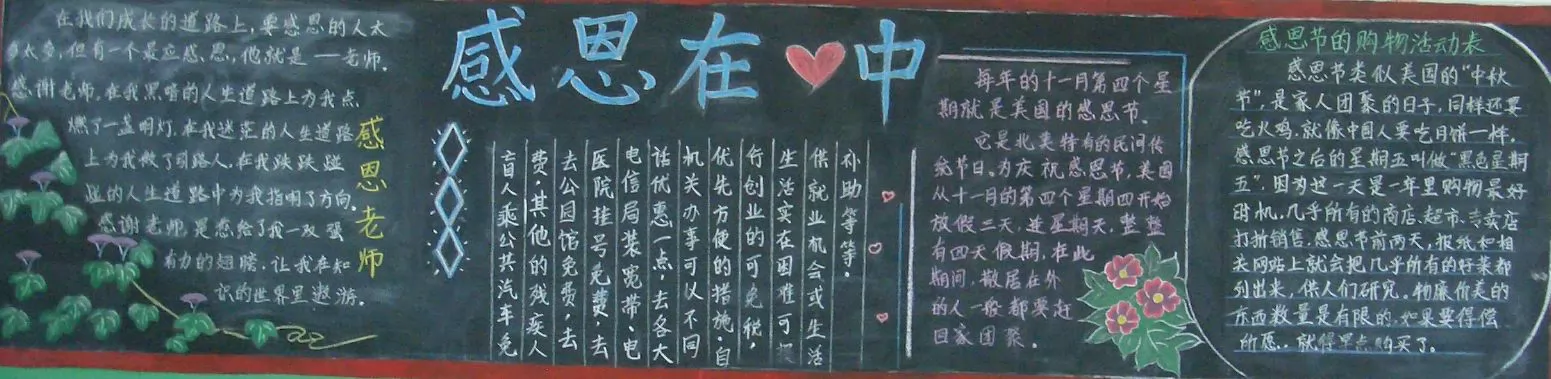 在我们成长的道路上，要感恩的人太
多太多，但有一个最应感恩，他就是——老师。
感谢老师，在我黑暗的人生道路上为我点
燃了一盏明灯，在我迷茫的人生道路
上为我做了引路人，在我跌跌碰
碰的人生道路中为我指明了方向。
感谢老师，是您给了我一双强
有力的翅膀，让我在知
识的世界里遨游。
感恩老师
感恩在中
盲人乘公共汽车免
费，其他的残疾人
去公园馆免费，去
医院挂号免费，去
电信局装宽带、电
话优惠一点，去各大
机关办事可以不同
优先方便的措施，自
行创业的可免税，
生活实在困难可提
供就业机会或生活
补助等等。
每年的十一月第四个星
期就是美国的感恩节。
它是北美特有的民间传
统节日。为庆祝感恩节，美国
从十一月的第四个星期四开始
放假二天，连星期天，整整
有四天假期，在此
期间，散居在外
的人一般都要赶
回家团聚。
感恩节的购物活动表
感恩节类似美国的“中秋
节”，是家人团聚的日子，同样还要
吃火鸡，就像中国人要吃月饼一样。
感恩节之后的星期五叫做“黑色星期
五”，因为这一天是一年里购物最好
时机，几乎所有的商店、超市、专卖店
打折销售，感恩节前两天，报纸和相
关网站上就会把几乎所有的好菜都
列出来，供人们研究。物廉价美的
东西数量是有限的，如果要得偿
所愿，就得早点购买了。